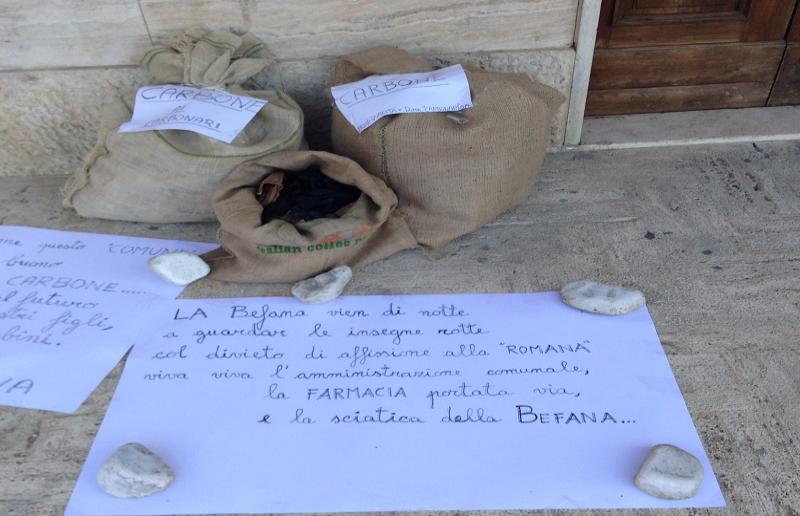 CARBONE
CARBONARI
CARBONE
italian coffee
questo "COMUN
buono
CARBONE.....
futuro
figli,
LA Befana vien di notte
a guardar le insegne rotte
col divieto di affissione alla "ROMANA"
viva viva l'amministrazione comunale,
la FARMACIA portata via,
e la sciatica della BEFANA...